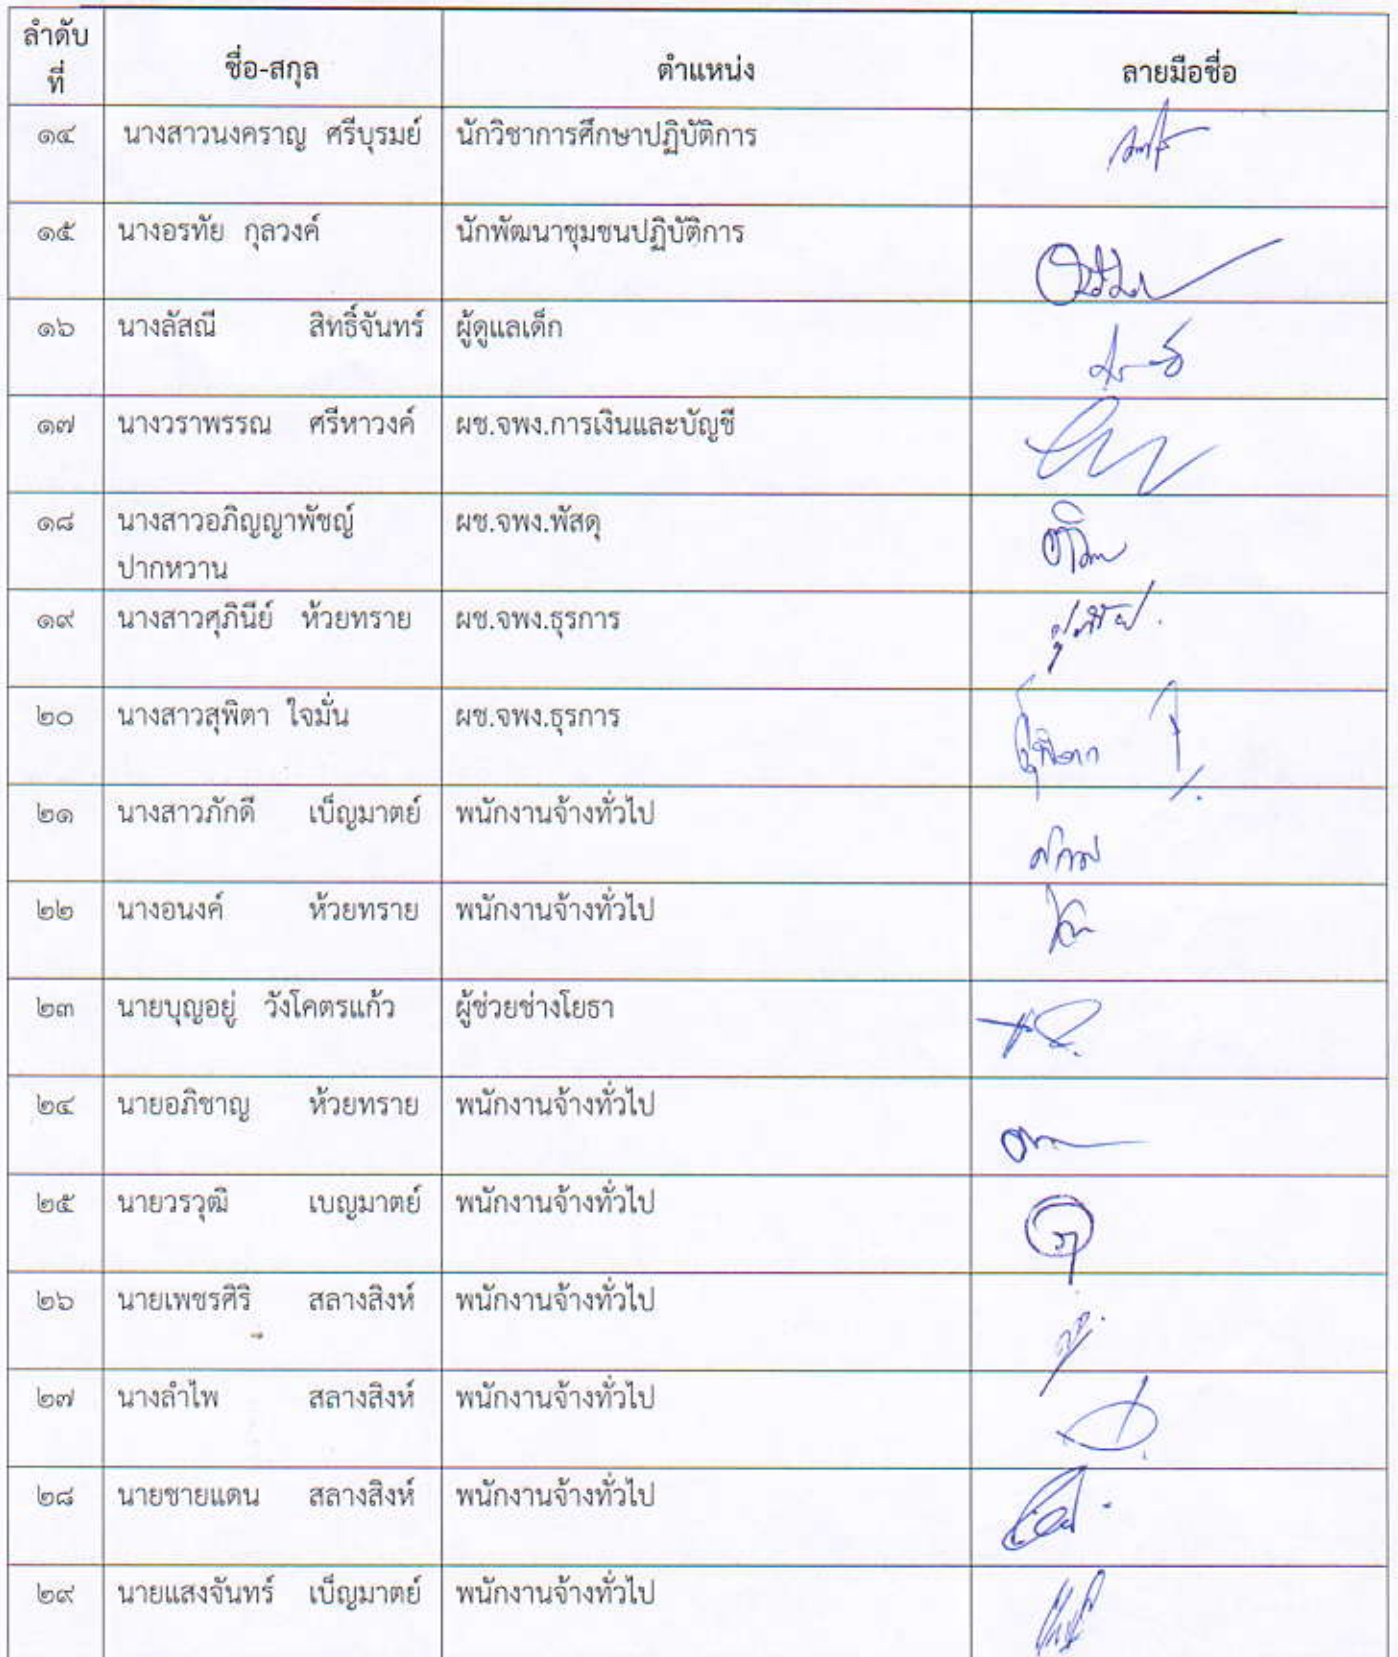 ลำดับ
ที่ ชื่อ-สกุล ตำแหน่ง ลายมือชื่อ
๑๔ นางสาวนงคราญ ศรีบุรมย์ นักวิชาการศึกษาปฏิบัติการ
๑๕ นางอรทัย กุลวงค์ นักพัฒนาชุมชนปฏิบัติการ
๑๖ นางลัสณี สิทธิ์จันทร์ ผู้ดูแลเด็ก
๑๗ นางวราพรรณ ศรีหาวงค์ ผช.จพง.การเงินและบัญชี
๑๘ นางสาวอภิญญาพัชญ์ ผช.จพง.พัสดุ
ปากหวาน
๑๙ นางสาวศุภินีย์ ห้วยทราย ผช.จพง.ธุรการ
๒๐ นางสาวสุพิตา ใจมั่น ผช.จพง.ธุรการ
๒๑ นางสาวภักดี เบ็ญมาตย์ พนักงานจ้างทั่วไป
๒๒ นางอนงค์ ห้วยทราย พนักงานจ้างทั่วไป
๒๓ นายบุญอยู่ วังโคตรแก้ว ผู้ช่วยช่างโยธา
๒๔ นายอภิชาญ ห้วยทราย พนักงานจ้างทั่วไป
๒๕ นายวรวุฒิ เบญมาตย์ พนักงานจ้างทั่วไป
๒๖ นายเพชรศิริ สลางสิงห์ พนักงานจ้างทั่วไป
๒๗ นางลำไพ สลางสิงห์ พนักงานจ้างทั่วไป
๒๘ นายชายแดน สลางสิงห์ พนักงานจ้างทั่วไป
๒๙ นายแสงจันทร์ เบ็ญมาตย์ พนักงานจ้างทั่วไป